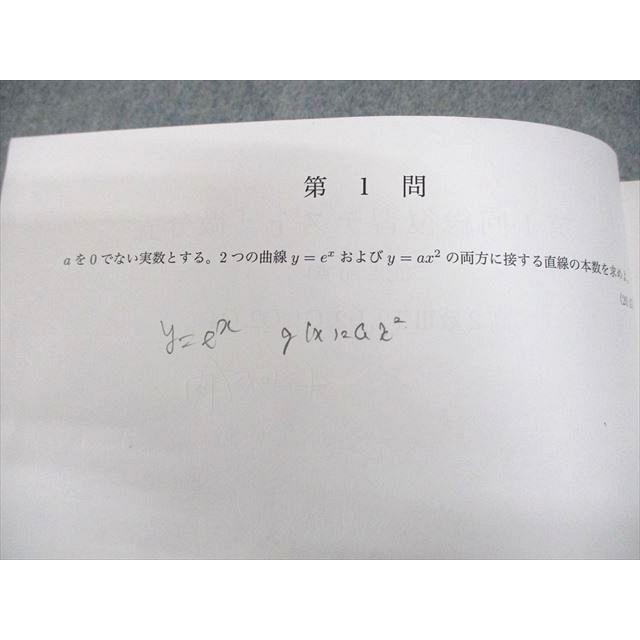 第 1 問
a を 0 でない実数とする。2 つの曲線 y = e^x および y = ax^2 の両方に接する直線の本数を求めよ。
y = e^x g(x) = ax^2